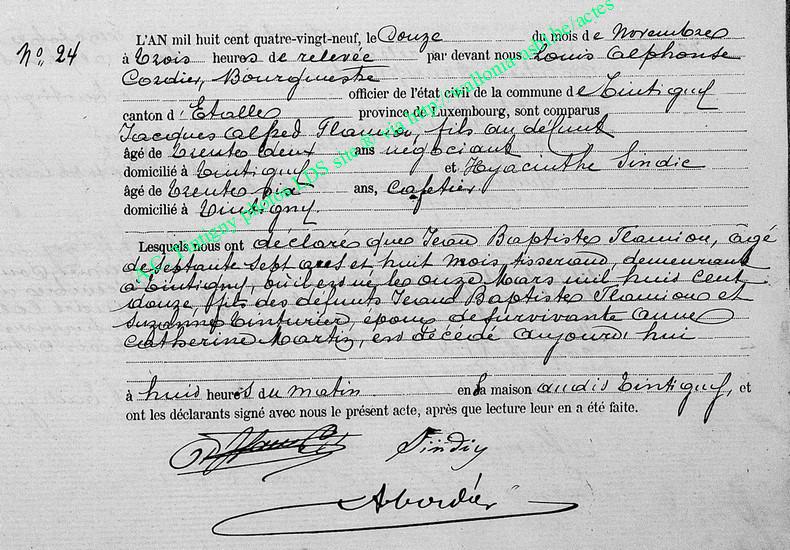 No. 24
L'AN mil huit cent quatre-vingt-neuf, le Douze du mois de Novembre
à trois heures de relevée par devant nous Louis Alphonse
Cordier, Bourgmestre
officier de l'état civil de la commune de Tintigny
canton d'Etalle province de Luxembourg, sont comparus
Jacques Alfred Flamion, fils du défunt
âgé de trente deux ans négociant
domicilié à Tintigny et Hyacinthe Sindic
âgé de trente six ans, Cafetier
domicilié à Tintigny.
Lesquels nous ont déclaré que Jean Baptiste Flamion, âgé
de septante sept ans et huit mois, tisserand, demeurant
à Tintigny, où il est né le onze Mars mil huit cent
douze, fils des défunts Jean Baptiste Flamion et
Suzanne Tinturier, époux de survivante Anne
Catherine Martin, est décédé aujourd'hui
à huit heures du matin en sa maison audit Tintigny, et
ont les déclarants signé avec nous le présent acte, après que lecture leur en a été faite.
Sindic
A Cordier
A.C. Tintigny photos LDS site ® via http://wallonia-asbl.be/actes